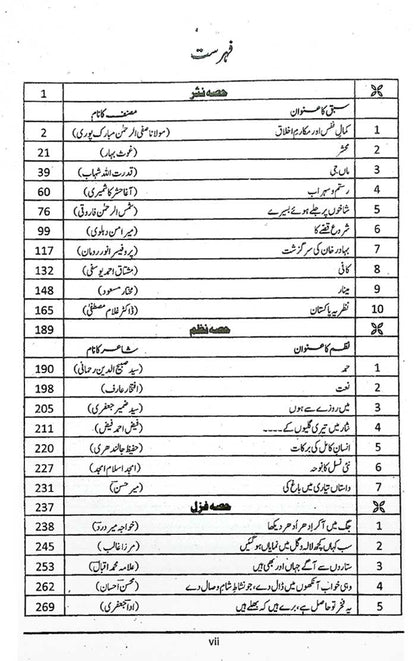 فہرست
حصہ نثر 1
سبق کا عنوان مصنف کا نام
1 کمالِ نفس اور مکارمِ اخلاق (مولانا صفی الرحمٰن مبارک پوری) 2
2 محشر (غوث بہار) 21
3 ماں جی (قدرت اللہ شہاب) 39
4 رستم و سہراب (آغا حشر کاشمیری) 60
5 شاخوں پر جلے ہوئے بسیرے (شمس الرحمٰن فاروقی) 76
6 شروع قصے کا (میر امن دہلوی) 99
7 بہادر خان کی سرگزشت (پروفیسر انور رومان) 117
8 کافی (مشتاق احمد یوسفی) 132
9 مینار (مختار مسعود) 148
10 نظریہ پاکستان (ڈاکٹر غلام مصطفیٰ) 165
حصہ نظم 189
نظم کا عنوان شاعر کا نام
1 حمد (سید صبیح الدین رحمانی) 190
2 نعت (افتخار عارف) 198
3 میں روزے سے ہوں (سید ضمیر جعفری) 205
4 نثار میں تیری گلیوں کے۔۔۔۔ (فیض احمد فیض) 211
5 انسانِ کامل کی برکات (حفیظ جالندھری) 220
6 نئی نسل کا نوحہ (امجد اسلام امجد) 227
7 داستاں تیاری میں باغ کی (میر حسن) 231
حصہ غزل 237
1 جگ میں آ کر اِدھر اُدھر دیکھا (خواجہ میر درد) 238
2 سب کہاں کچھ لالہ و گل میں نمایاں ہو گئیں (مرزا غالب) 245
3 ستاروں سے آگے جہاں اور بھی ہیں (علامہ محمد اقبال) 253
4 وہی خواب آنکھوں میں ڈال دے، جو نشاطِ شامِ وصال دے (محسن احسان) 262
5 یہ فخر تو حاصل ہے، برے ہیں کہ بھلے ہیں (ادا جعفری) 269
vii